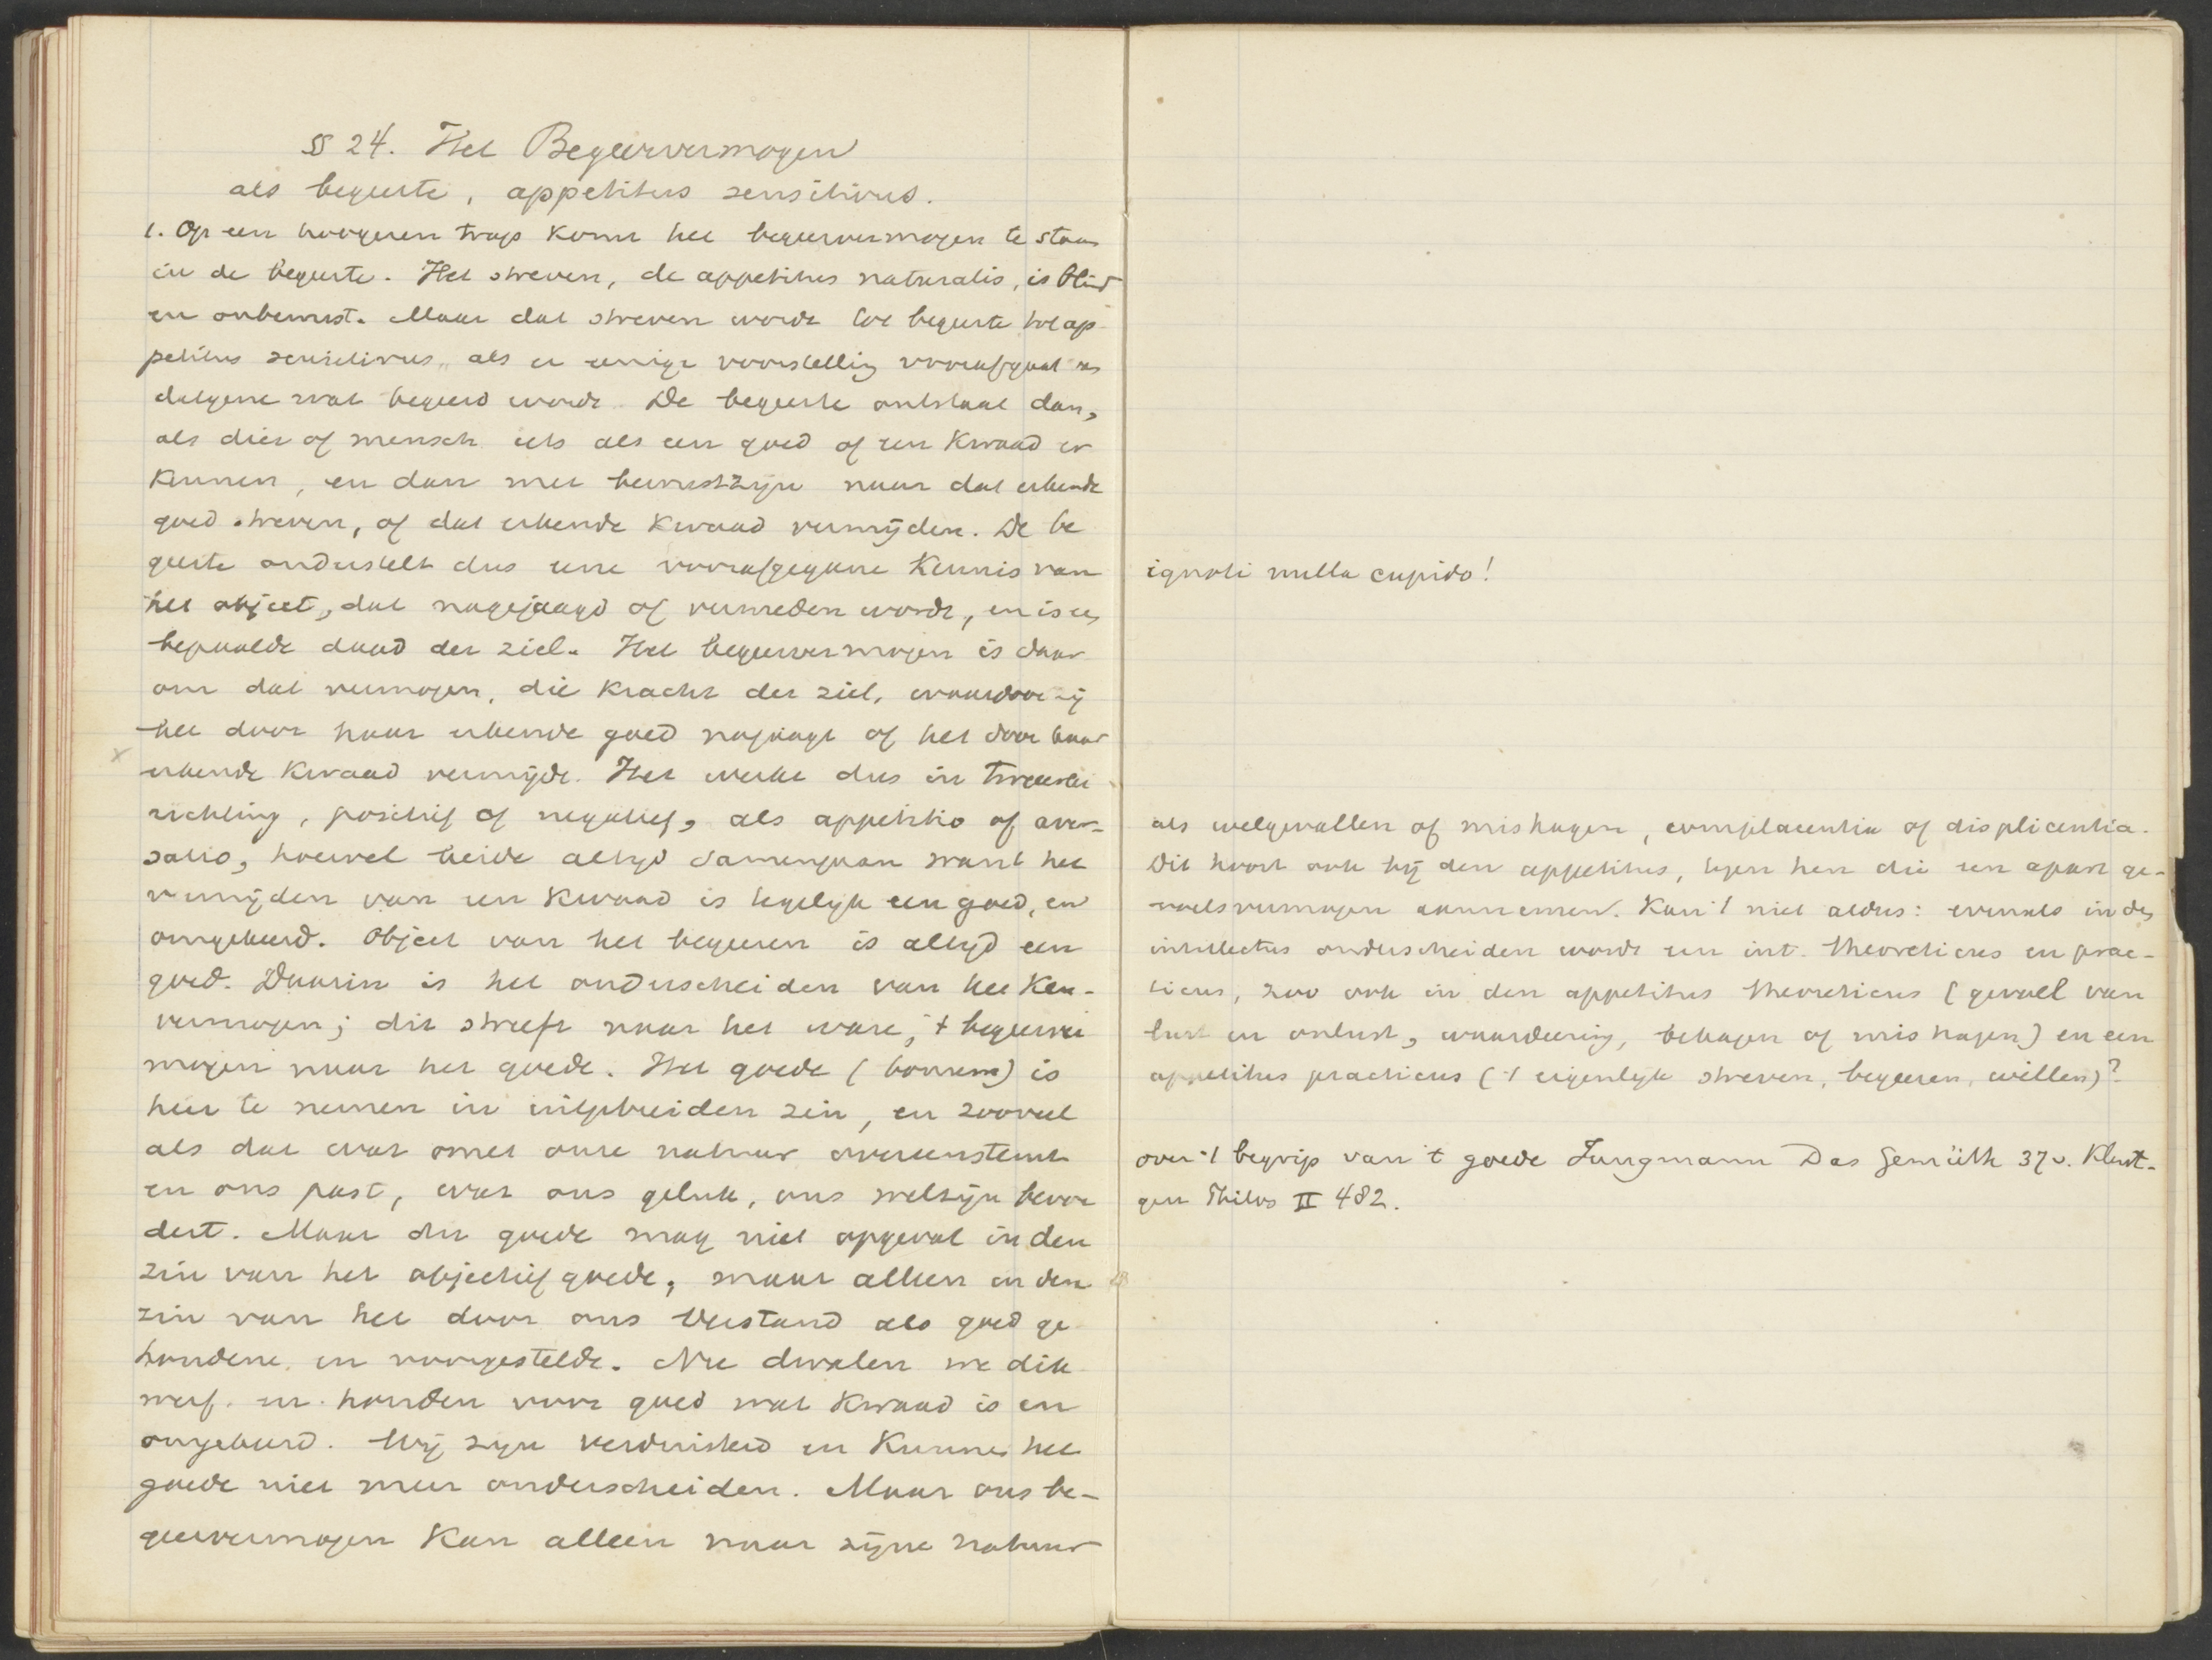 § 24. Het Begeervermogen
als begeerte, appetitus sensitivus.
1. Op een hoogeren trap komt het begeervermogen te staan
in de begeerte. Het streven, de appetitus naturalis, is blind
en onbewust. Maar dat streven wordt tot begeerte tot ap-
petitus sensitivus, als er eenige voorstelling voorafgaat van
datgene wat begeerd wordt. De begeerte ontstaat dan,
als dier of mensch iets als een goed of een kwaad er
kennen, en dan met bewustzijn naar dat erkende
goed streven, of dat erkende kwaad vermijden. De be
geerte onderstelt dus eene voorafgegane kennis van
het object, dat nagejaagd of vermeden wordt, en is een
bepaalde daad der ziel. Het begeervermogen is daar
om dat vermogen, die kracht der ziel, waardoor zij
het door haar erkende goed najaagt of het door haar
erkende kwaad vermijdt. Het werkt dus in tweeerlei
richting, positief of negatief, als appetitio of aver-
satio, hoewel beide altijd samengaan want het
vermijden van een kwaad is tegelijk een goed, en
omgekeerd. Object van het begeeren is altijd een
goed. Daarin is het onderscheiden van het ken-
vermogen; dit streeft naar het ware, 't begeerver
mogen naar het goede. Het goede (bonum) is
hier te nemen in uitgebreiden zin, en zooveel
als dat wat met onze natuur overeenstemt
en ons past, wat ons geluk, ons welzijn bevor
dert. Maar dit goede mag niet opgevat in den
zin van het objectief goede, maar alleen in den
zin van het door ons verstand als goed ge
houdene en voorgestelde. Nu dwalen we dik
werf en houden voor goed wat kwaad is en
omgekeerd. Wij zijn verduisterd en kunnen het
goede niet meer onderscheiden. Maar ons be-
geervermogen kan alleen naar zijne natuur
ignoti nulla cupido!
als welgevallen of mishagen, complacentia of displicentia.
Dit hoort ook bij den appetitus, tegen hen die een apart ge-
voelsvermogen aannemen. Kan 't niet aldus: evenals in den
intellectus onderscheiden wordt een int. theoreticus en prac-
ticus, zoo ook in den appetitus theoreticus (gevoel van
lust en onlust, waardeering, behagen of mishagen) en een
appetitus practicus ('t eigenlijk streven, begeeren, willen)?
over 't begrip van 't goede Jungmann Das Gemüth 37 v. Kleut-
gen Philos II 482.